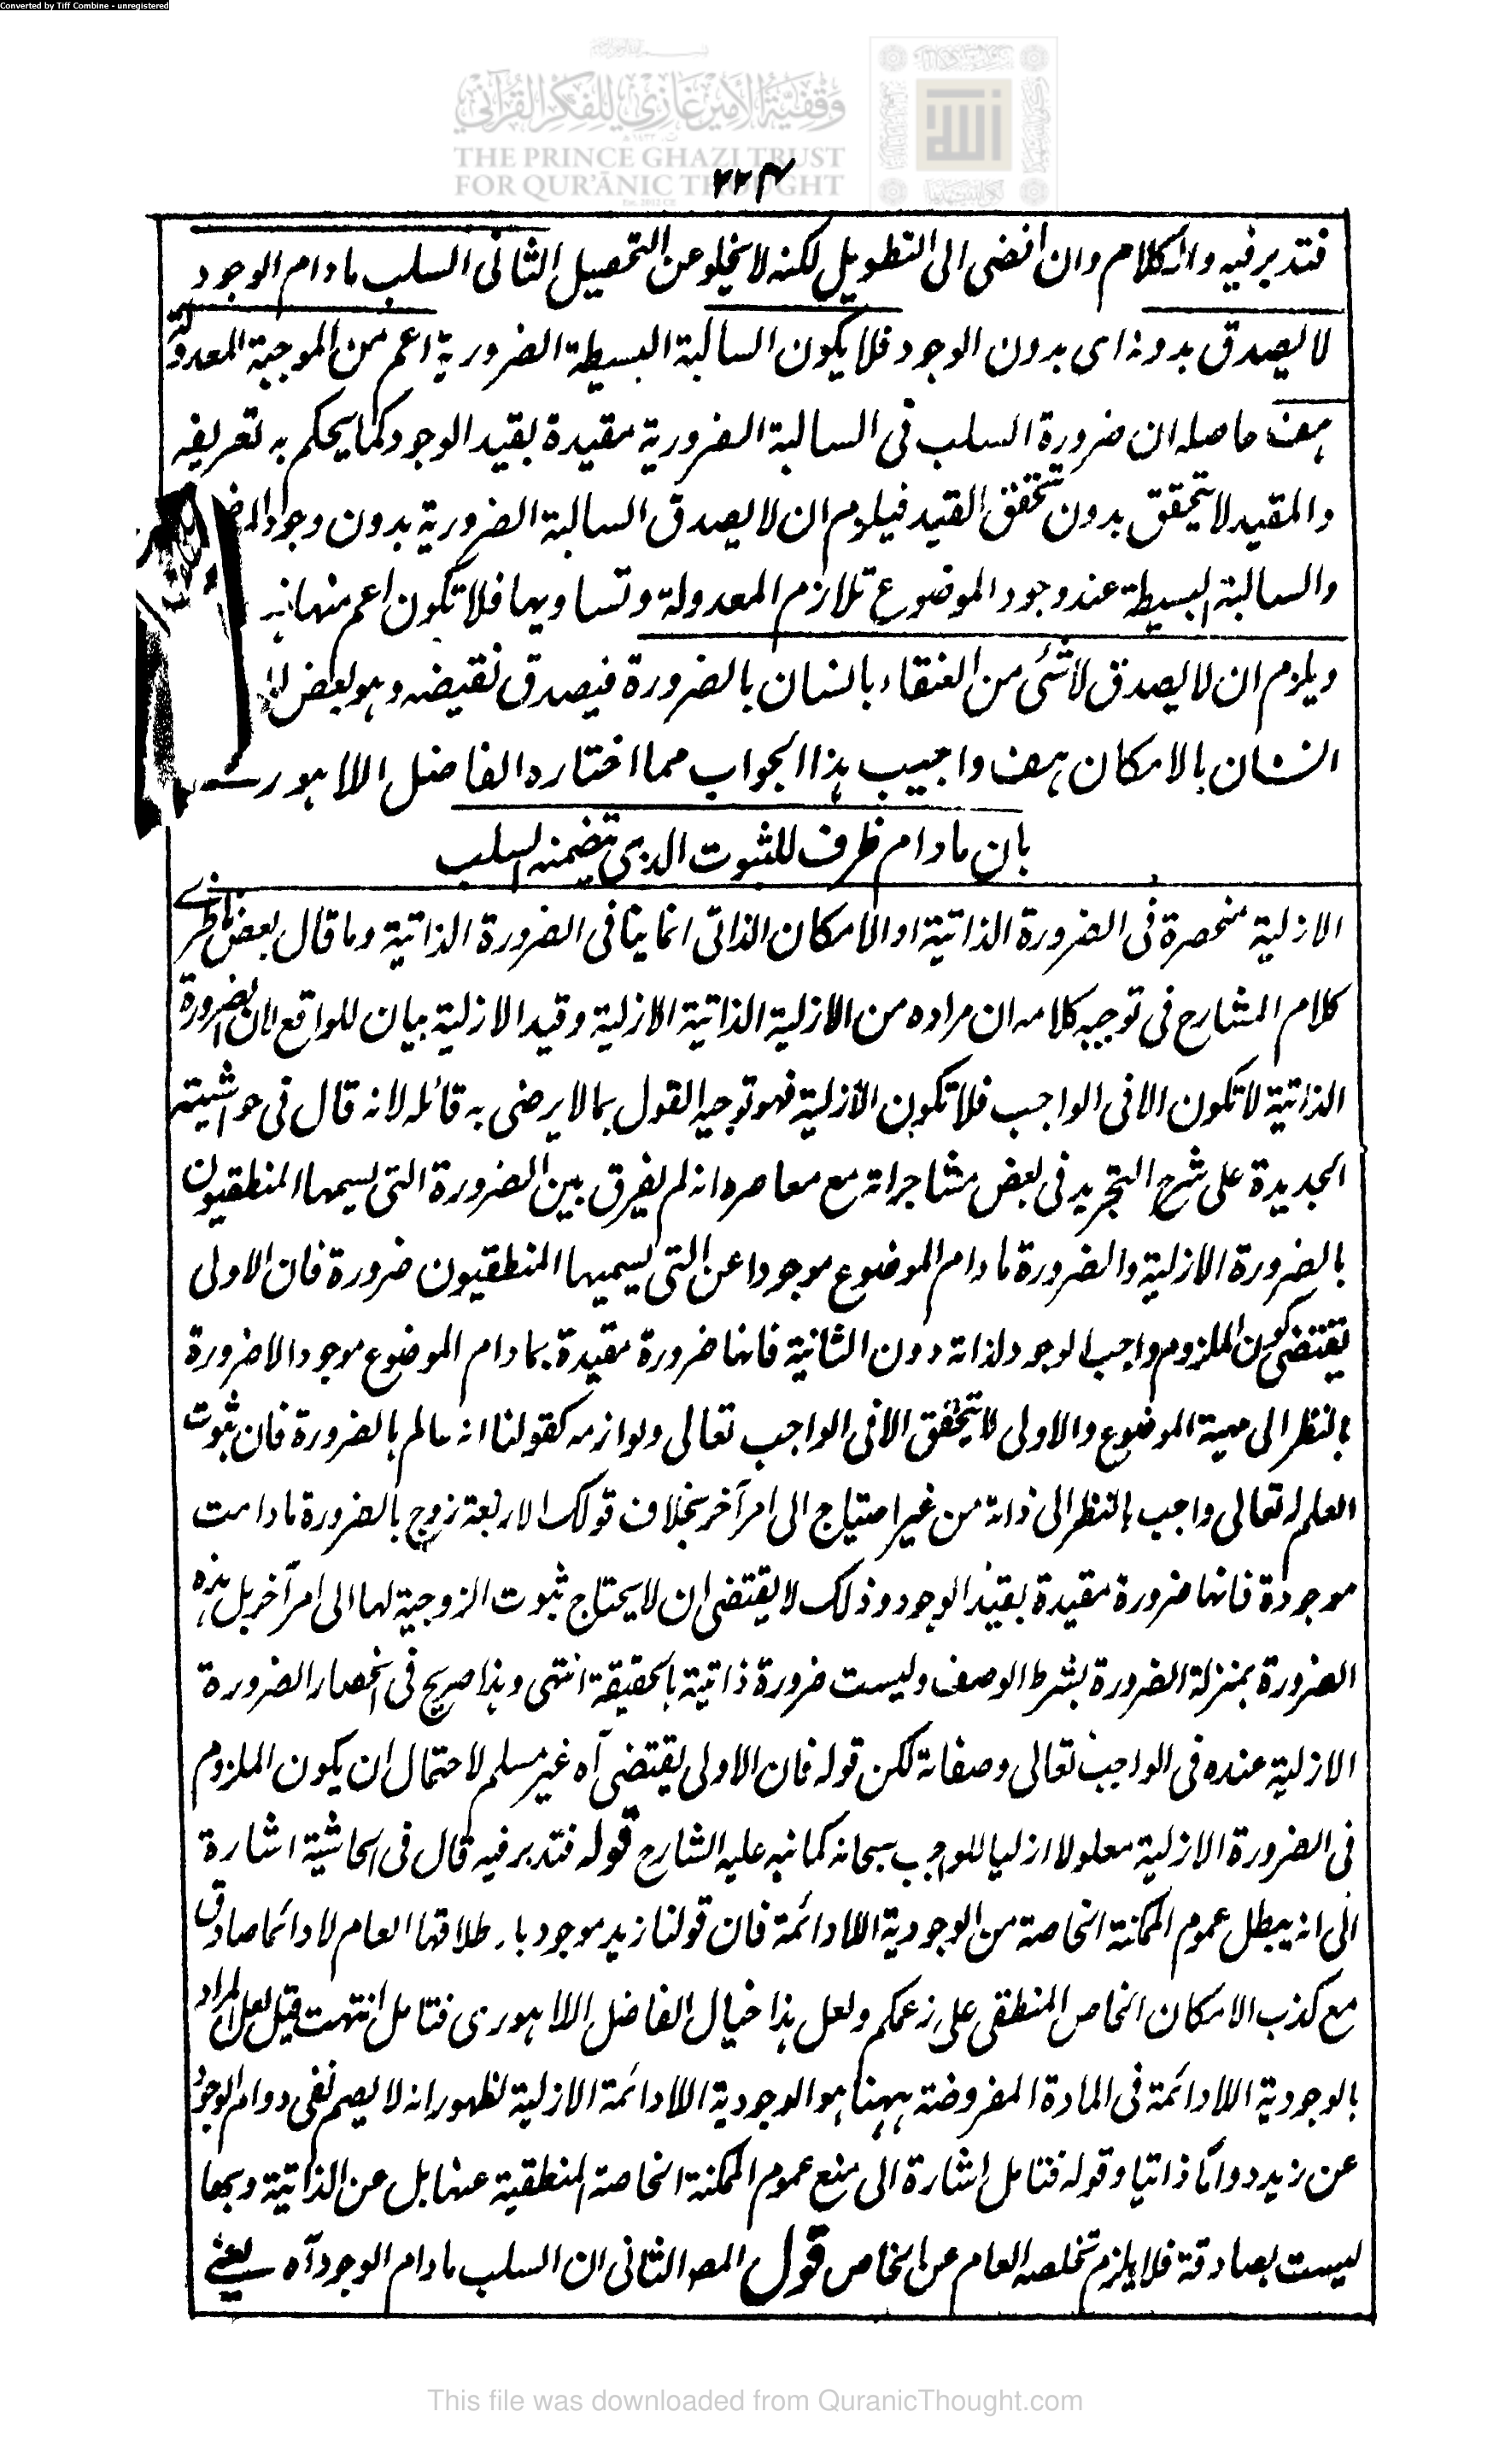 Converted by Tiff Combine - unregistered
وَقْفِيَّةُ الأَمِيرِ غَازِي لِلْفِكْرِ القُرْآنِي
THE PRINCE GHAZI TRUST
FOR QUR'ĀNIC THOUGHT
٢٢٤
فتدبر فيه والكلام وان افضى الى التطويل لكنه لا يخلو عن التحصيل الثانى السلب مادام الوجود
لا يصدق بدونه اى بدون الوجود فلا يكون السالبة البسيطة الضرورية اعم من الموجبة المعدولة
هف حاصله ان ضرورة السلب فى السالبة الضرورية مقيدة بقيد الوجود كما يحكم به تعريفه
والمقيد لا يتحقق بدون تحقق القيد فيلزم ان لا يصدق السالبة الضرورية بدون وجود
والسالبة البسيطة عند وجود الموضوع تلازم المعدولة وتساويها فلا تكون اعم منها
ويلزم ان لا يصدق لا شئ من العنقاء بانسان بالضرورة فيصدق نقيضه وهو بعض
انسان بالامكان هف واجيب هذا الجواب مما اختاره الفاضل اللاهورى
بان مادام ظرف للثبوت الذى يتضمنه السلب
الازلية منحصرة فى الضرورة الذاتية او الامكان الذاتى انما ينافى الضرورة الذاتية وما قال بعض ناظرى
كلام الشارح فى توجيه كلامه ان مراده من الازلية الذاتية الازلية وقيد الازلية بيان للواقع لان الضرورة
الذاتية لا تكون الا فى الواجب فلا تكون الا ازلية فهو توجيه القول بما لا يرضى به قائله لانه قال فى حواشيته
الجديدة على شرح التجريد فى بعض مشاجراته مع معاصره انه لم يفرق بين الضرورة التى يسميها المنطقيون
بالضرورة الازلية والضرورة مادام الموضوع موجودا عن التى يسميها المنطقيون ضرورة فان الاولى
يقتضى كون الملزوم واجب الوجود لذاته دون الثانية فانها ضرورة مقيدة بمادام الموضوع موجودا لا ضرورة
بالنظر الى مهية الموضوع والاولى لا يتحقق الا فى الواجب تعالى ولوازمه كقولنا انه عالم بالضرورة فان ثبوت
العلم له تعالى واجب بالنظر الى ذاته من غير احتياج الى امر آخر بخلاف قولك الاربعة زوج بالضرورة مادامت
موجودة فانها ضرورة مقيدة بقيد الوجود وذلك لا يقتضى ان لا يحتاج ثبوت الزوجية لها الى امر آخر بل هذه
الضرورة بمنزلة الضرورة بشرط الوصف وليست ضرورة ذاتية بالحقيقة انتهى وهذا صريح فى انحصار الضرورة
الازلية عنده فى الواجب تعالى وصفاته لكن قوله فان الاولى يقتضى آه غير مسلم لاحتمال ان يكون الملزوم
فى الضرورة الازلية معلولا ازليا للواجب سبحانه كما نبه عليه الشارح قوله فتدبر فيه قال فى الحاشية اشارة
الى انه يبطل عموم الممكنة الخاصة من الوجودية اللادائمة فان قولنا زيد موجود باطلاقها العام لا دائما صادق
مع كذب الامكان الخاص المنطقى على زعمكم ولعل هذا خيال الفاضل اللاهورى فتامل انتهت قيل لعل المراد
بالوجودية اللادائمة فى المادة المفروضة ههنا هو الوجودية اللادائمة الازلية لظهور انه لا يصح نفى دوام الوجود
عن زيد دواما ذاتيا وقوله فتامل اشارة الى منع عموم الممكنة الخاصة المنطقية عنها بل عن الذاتية وبها
ليست بصادقة فلا يلزم تخلصه العام عن الخاص قول المصـ الثانى ان السلب مادام الوجود آه يعنى
This file was downloaded from QuranicThought.com